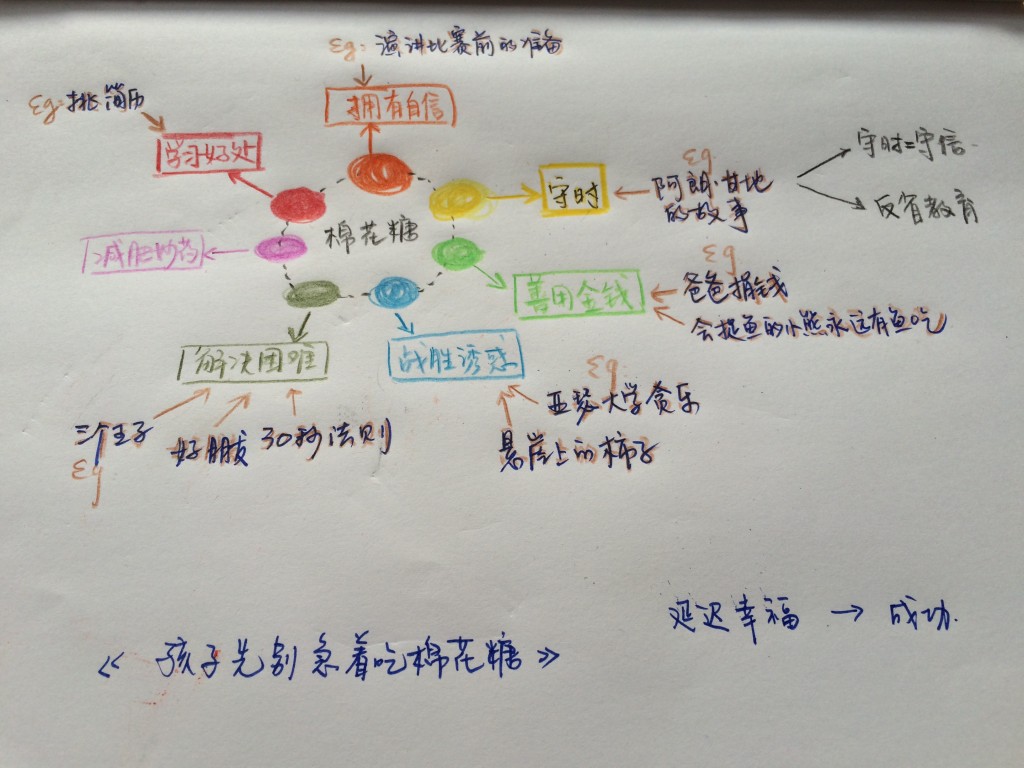 Eg: 演讲比赛前的准备
拥有自信
Eg: 挑简历
学习好处
守时
Eg
阿朗·甘地
的故事
守时=守信
反省教育
棉花糖
减肥妙药
善用金钱
Eg
爸爸捐钱
会捉鱼的小熊永远有鱼吃
解决困难
战胜诱惑
Eg
亚瑟大学贪乐
悬崖上的柿子
三个王子
Eg
好朋友
30秒法则
延迟幸福 → 成功.
《孩子先别急着吃棉花糖》